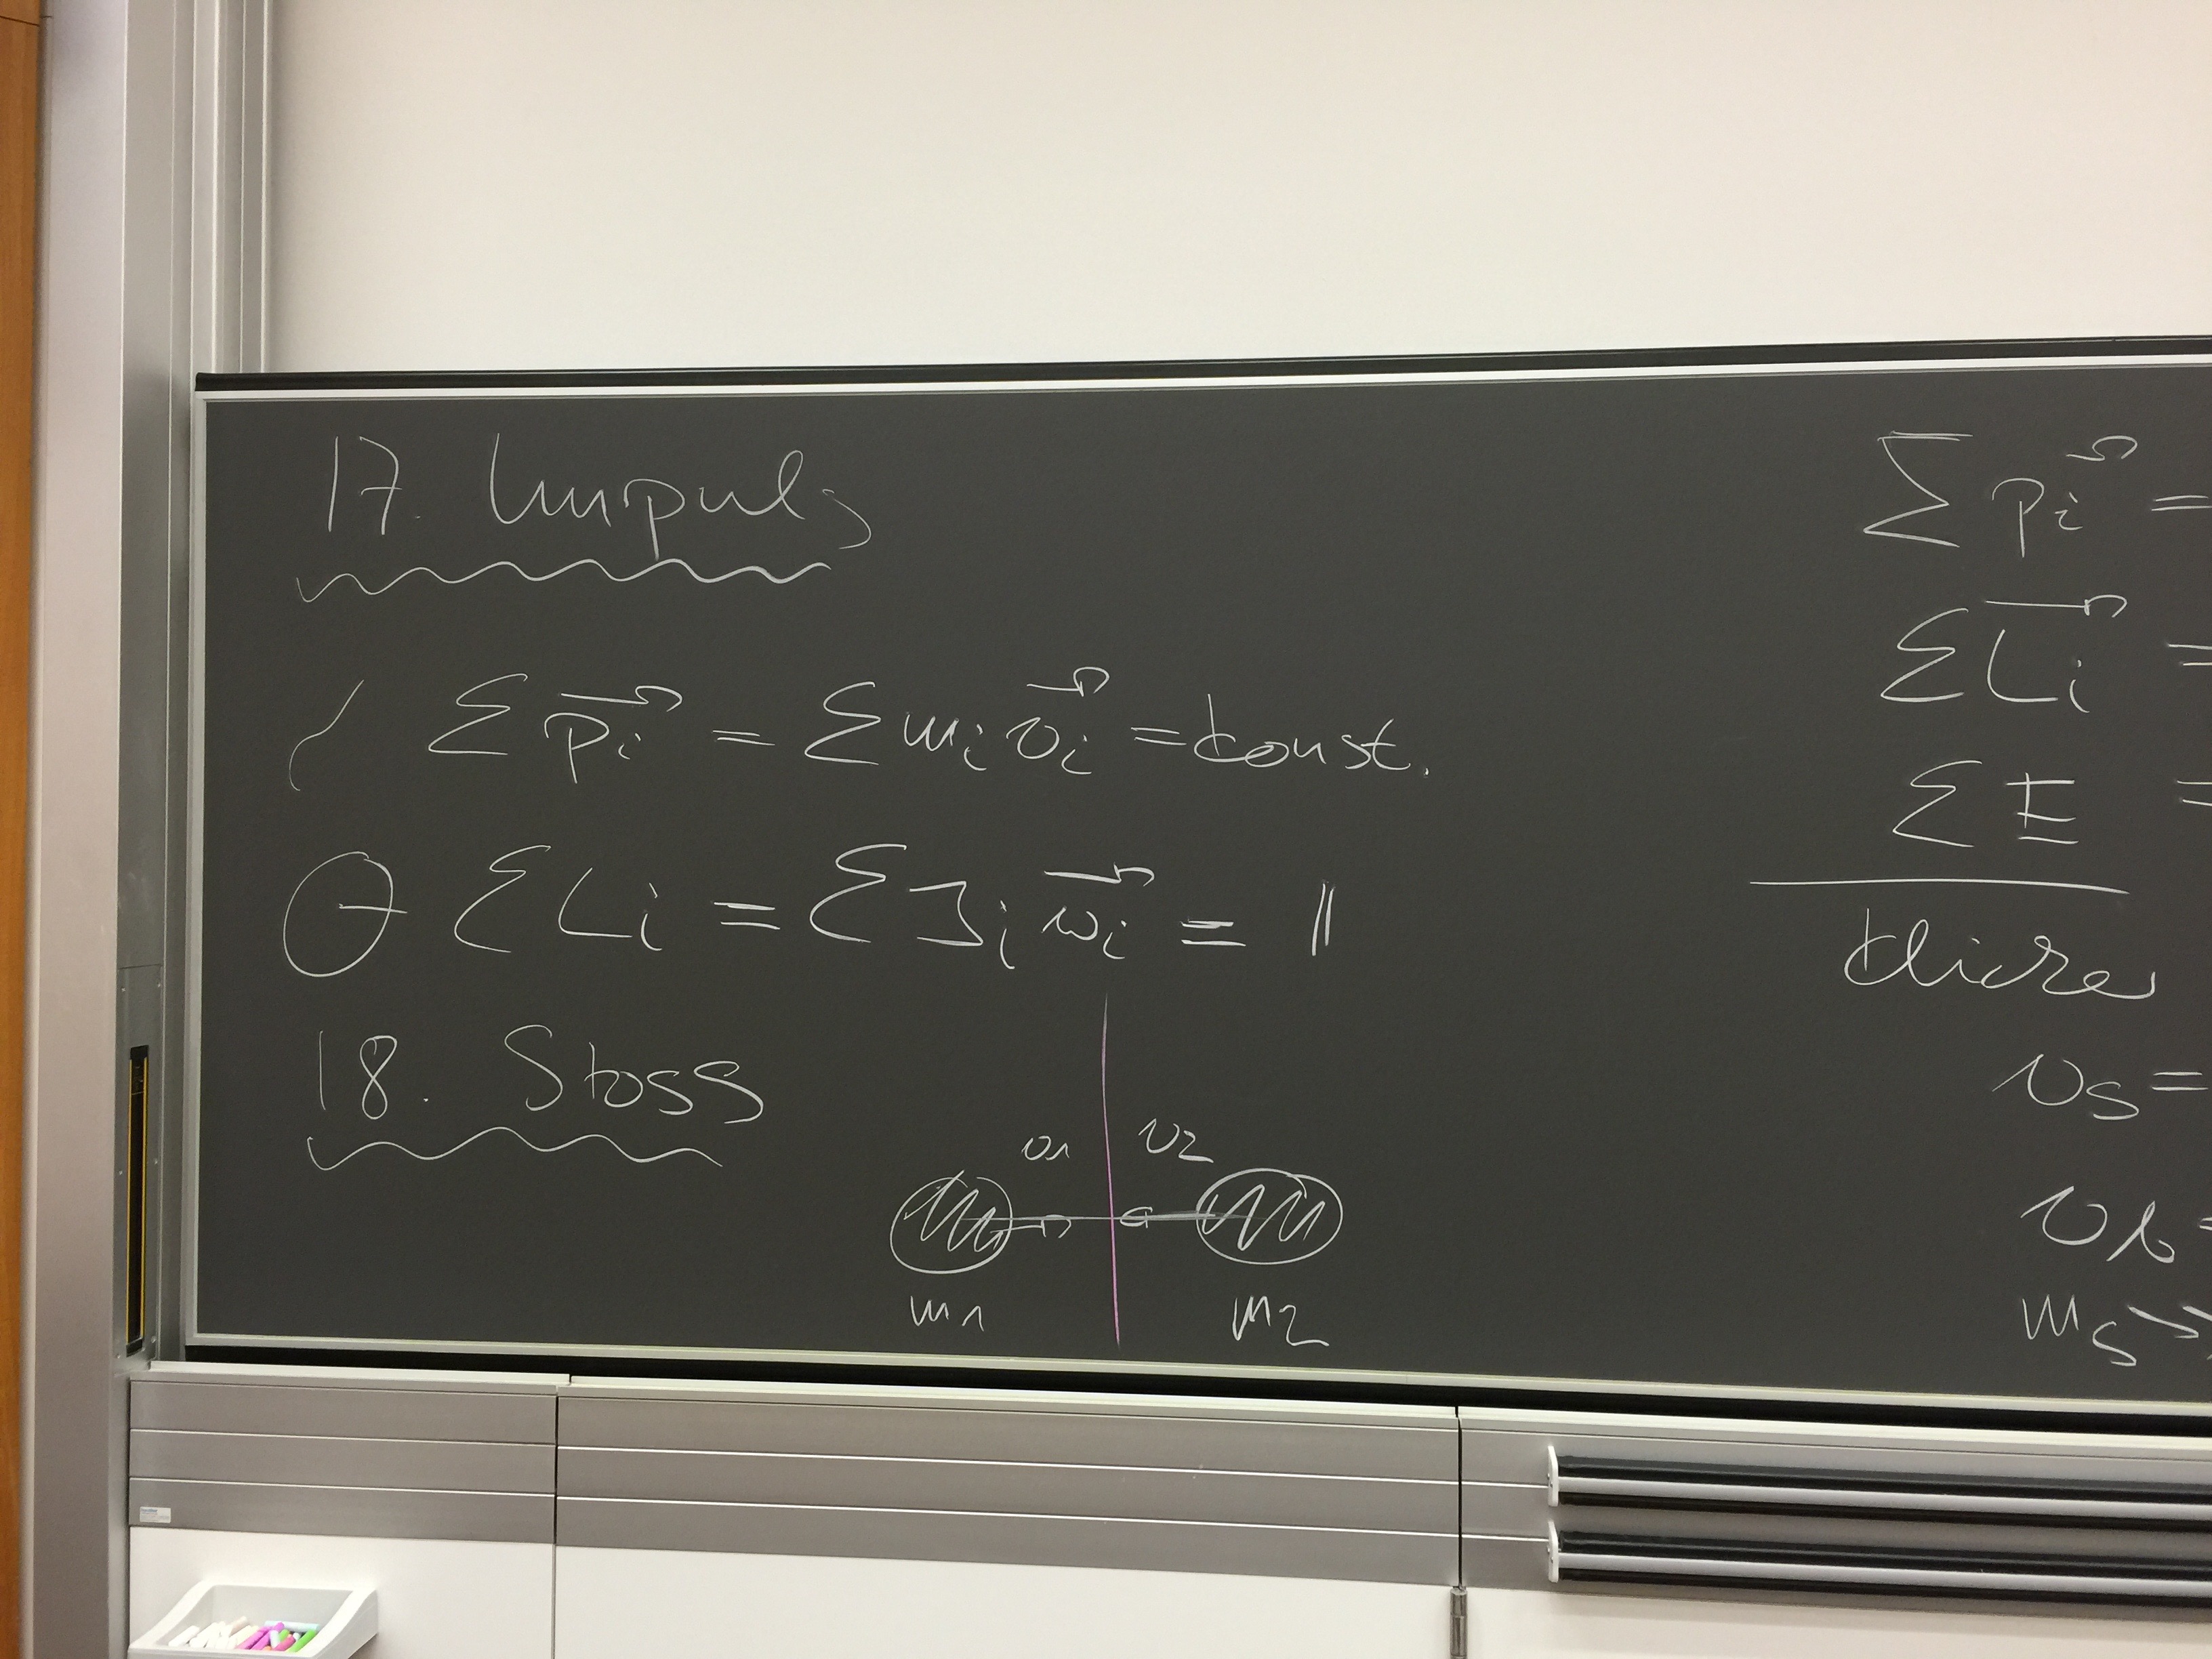 17. Impuls
Σ p⃗i = Σ mi v⃗i = konst.
Σ Li = Σ Ji ω⃗i = ||
18. Stoss
v1 v2
m1 m2
Σ p⃗i =
Σ L⃗i =
Σ E =
vs =
ms >